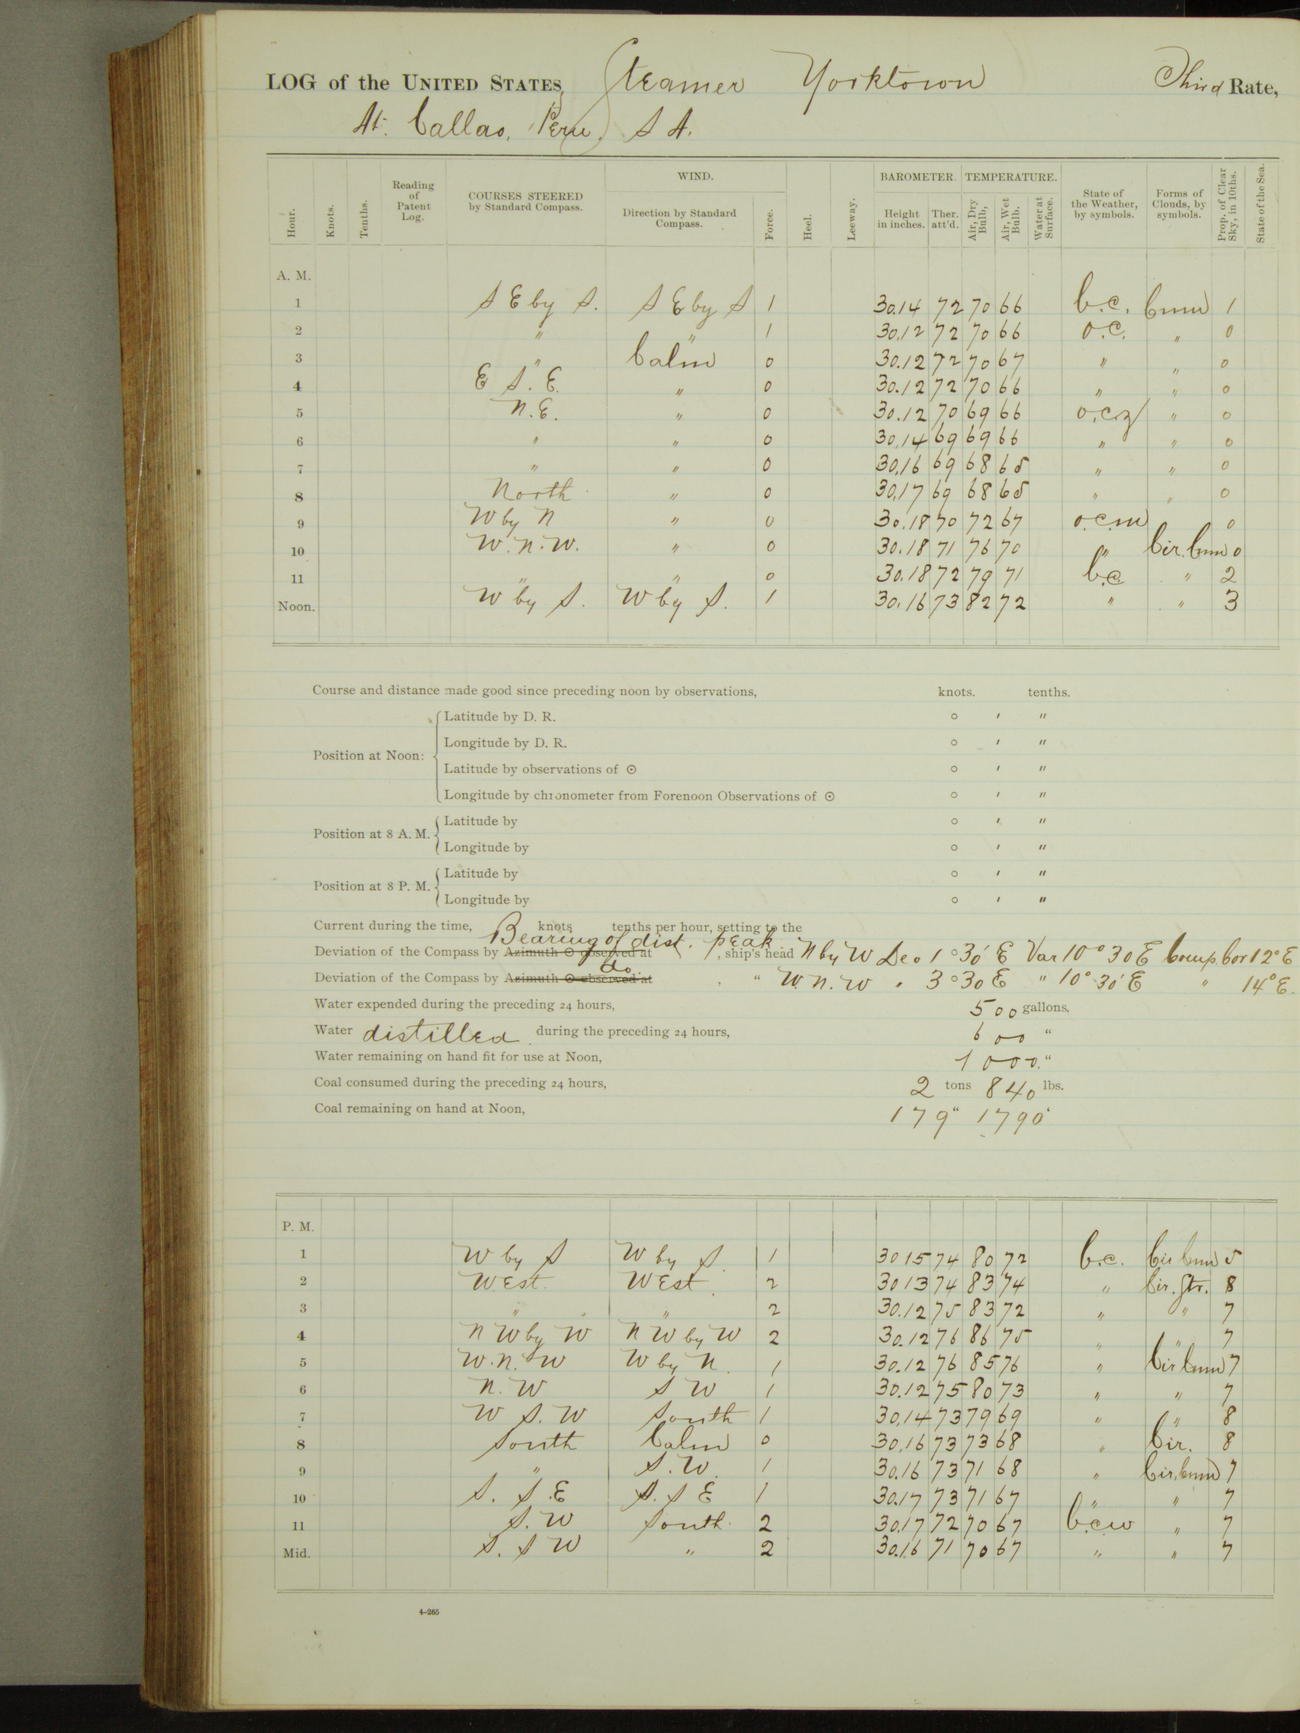 LOG of the UNITED STATES Steamer Yorktown Third Rate,
At Callao, Peru, S A.
Hour. Knots. Tenths. Reading of Patent Log. COURSES STEERED by Standard Compass. WIND. Direction by Standard Compass. Force. Heel. Leeway. BAROMETER. Height in inches. Ther. att'd. TEMPERATURE. Air, Dry Bulb. Air, Wet Bulb. Water at Surface. State of the Weather, by symbols. Forms of Clouds, by symbols. Prop. of Clear Sky, in 10ths. State of the Sea.
A. M.
1 S E by S. S E by S 1 30.14 72 70 66 b.c. Cum 1
2 " " 1 30.12 72 70 66 o.c. " 0
3 " Calm 0 30.12 72 70 67 " " 0
4 E S. E. " 0 30.12 72 70 66 " " 0
5 N.E. " 0 30.12 70 69 66 o.c.z " 0
6 " " 0 30.14 69 69 66 " " 0
7 " " 0 30.16 69 68 65 " " 0
8 North " 0 30.17 69 68 65 " " 0
9 W by N " 0 30.18 70 72 67 o.c.m 0
10 W.N.W. " 0 30.18 71 76 70 " Cir. Cum 0
11 " " 0 30.18 72 79 71 b.c " 2
Noon. W by S. W by S. 1 30.16 73 82 72 " " 3
Course and distance made good since preceding noon by observations, knots. tenths.
Position at Noon: Latitude by D. R. ° ′ ″
Longitude by D. R. ° ′ ″
Latitude by observations of ☉ ° ′ ″
Longitude by chronometer from Forenoon Observations of ☉ ° ′ ″
Position at 8 A. M. Latitude by ° ′ ″
Longitude by ° ′ ″
Position at 8 P. M. Latitude by ° ′ ″
Longitude by ° ′ ″
Current during the time, knots tenths per hour, setting to the
Bearing of dist. peak
Deviation of the Compass by Azimuth ☉ observed at , ship's head N by W Dev 1°30′ E Var 10°30 E Comp Cor 12° E
do.
Deviation of the Compass by Azimuth ☉ observed at , " W. N. W " 3°30 E " 10°30′ E " 14° E.
Water expended during the preceding 24 hours, 500 gallons.
Water distilled during the preceding 24 hours, 600 "
Water remaining on hand fit for use at Noon, 1000 "
Coal consumed during the preceding 24 hours, 2 tons 840 lbs.
Coal remaining on hand at Noon, 179 " 1790 "
P. M.
1 W by S W by S. 1 30 15 74 80 72 b.c. Cir Cum 5
2 West West 2 30 13 74 83 74 " Cir. Str. 8
3 " " 2 30.12 75 83 72 " " 7
4 N W by W N W by W 2 30.12 76 86 75 " " 7
5 W.N.W W by N. 1 30.12 76 85 76 " Cir Cum 7
6 N. W S W 1 30.12 75 80 73 " " 7
7 W S. W South 1 30.14 73 79 69 " " 8
8 South Calm 0 30.16 73 73 68 " Cir. 8
9 " S. W. 1 30.16 73 71 68 " Cir. Cum 7
10 S. S. E S. S E 1 30.17 73 71 67 " " 7
11 S. W South 2 30.17 72 70 67 b.c.w " 7
Mid. S. S W " 2 30.16 71 70 67 " " 7
4-265